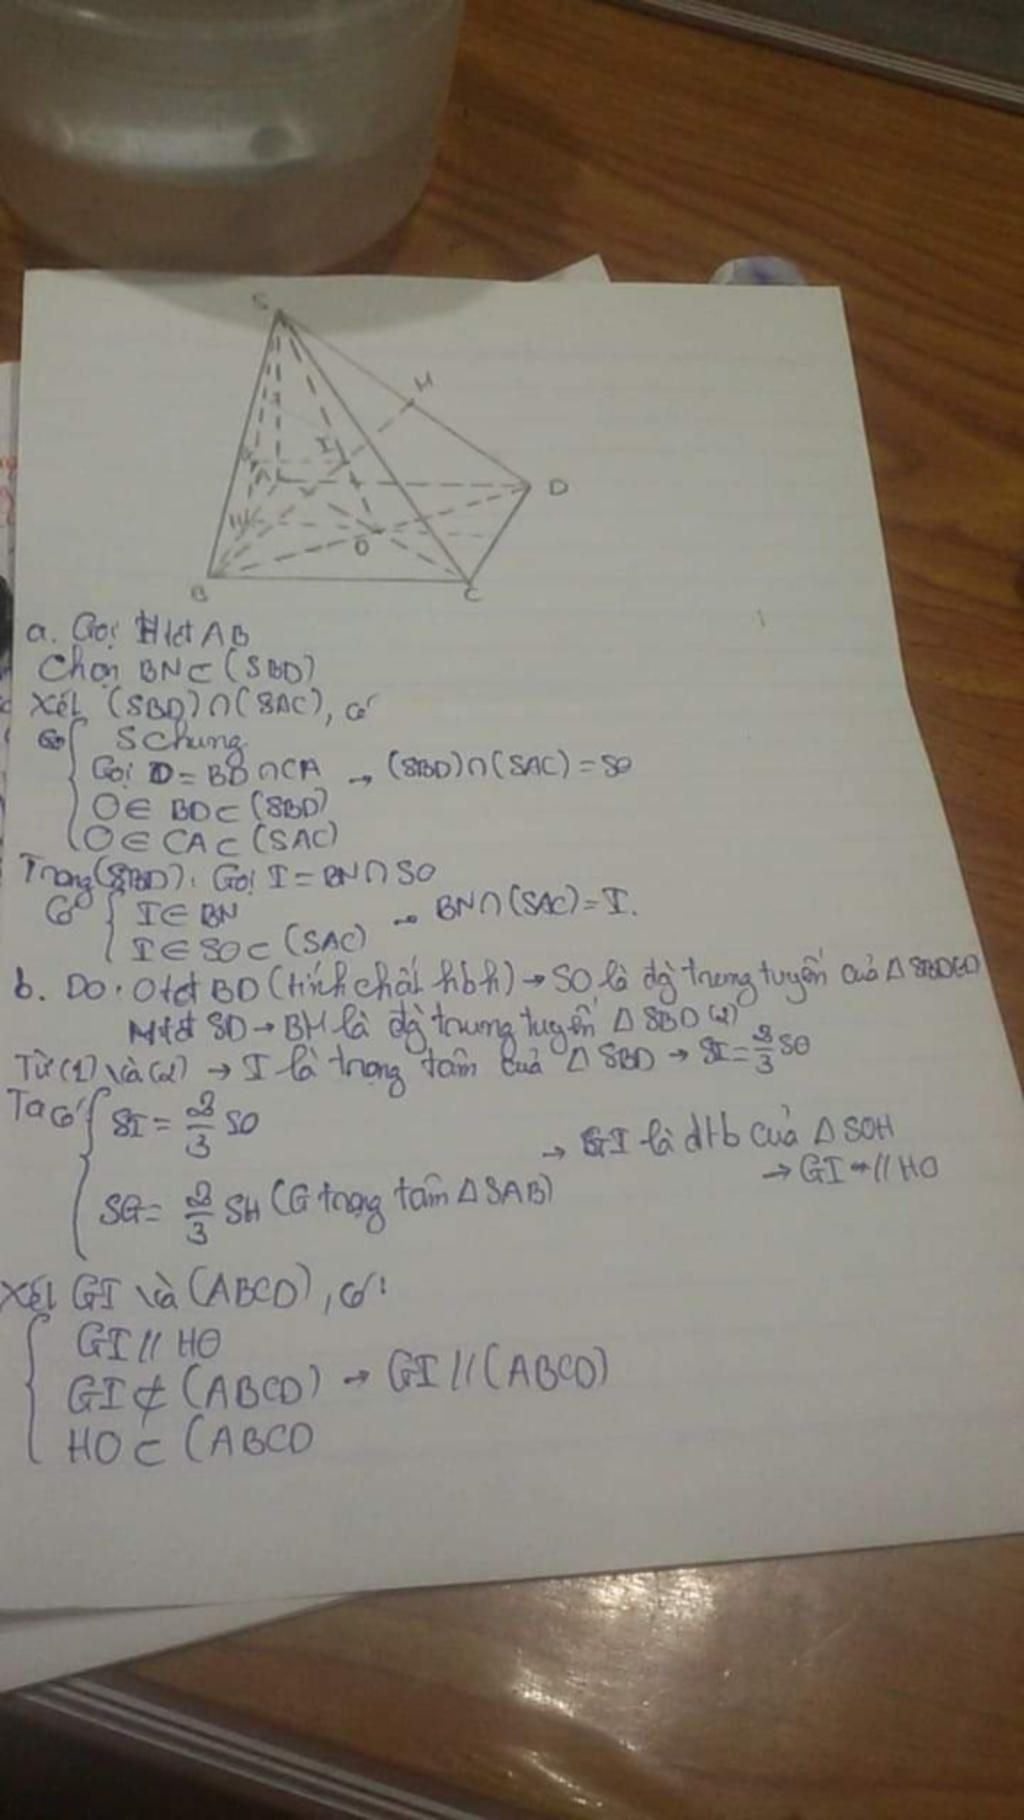 S
M
I
D
O
B
C
a. Gọi H tđ AB
Chọn BN ⊂ (SBD)
Xét (SBD) ∩ (SAC), có
Có { S chung
Gọi O = BD ∩ CA → (SBD) ∩ (SAC) = SO
O ∈ BD ⊂ (SBD)
O ∈ CA ⊂ (SAC)
Trong (SBD): Gọi I = BN ∩ SO
Có { I ∈ BN → BN ∩ (SAC) = I.
I ∈ SO ⊂ (SAC)
b. Do · O tđ BD (tính chất hbh) → SO là đg trung tuyến của Δ SBD (1)
M tđ SD → BM là đg trung tuyến Δ SBD (2)
Từ (1) và (2) → I là trọng tâm của Δ SBD → SI = 2/3 SO
Ta có { SI = 2/3 SO
→ GI là đtb của Δ SOH
→ GI // HO
SG = 2/3 SH (G trọng tâm Δ SAB)
Xét GI và (ABCD), có:
{ GI // HO
GI ⊄ (ABCD) → GI // (ABCD)
HO ⊂ (ABCD